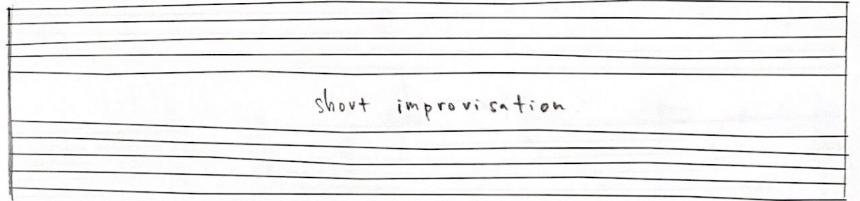 short improvisation